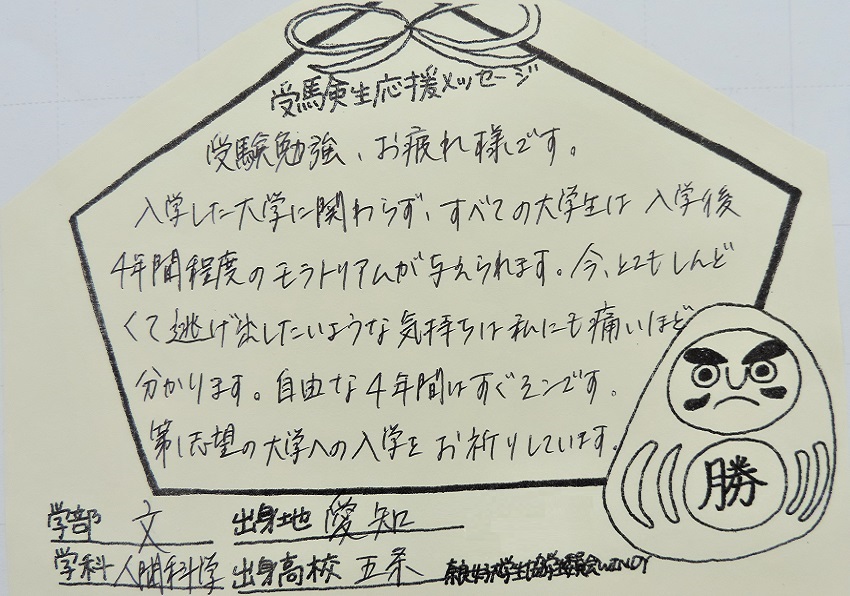 受験生応援メッセージ
受験勉強、お疲れ様です。
入学した大学に関わらず、すべての大学生は入学後
4年間程度のモラトリアムが与えられます。今、とてもしんど
くて逃げ出したいような気持ちは私にも痛いほど
分かります。自由な4年間はすぐそこです。
第1志望の大学への入学をお祈りしています。
勝
学部 文 出身地 愛知
学科 人間科学 出身高校 五条 奈良女子大学生協学生委員会WINDY